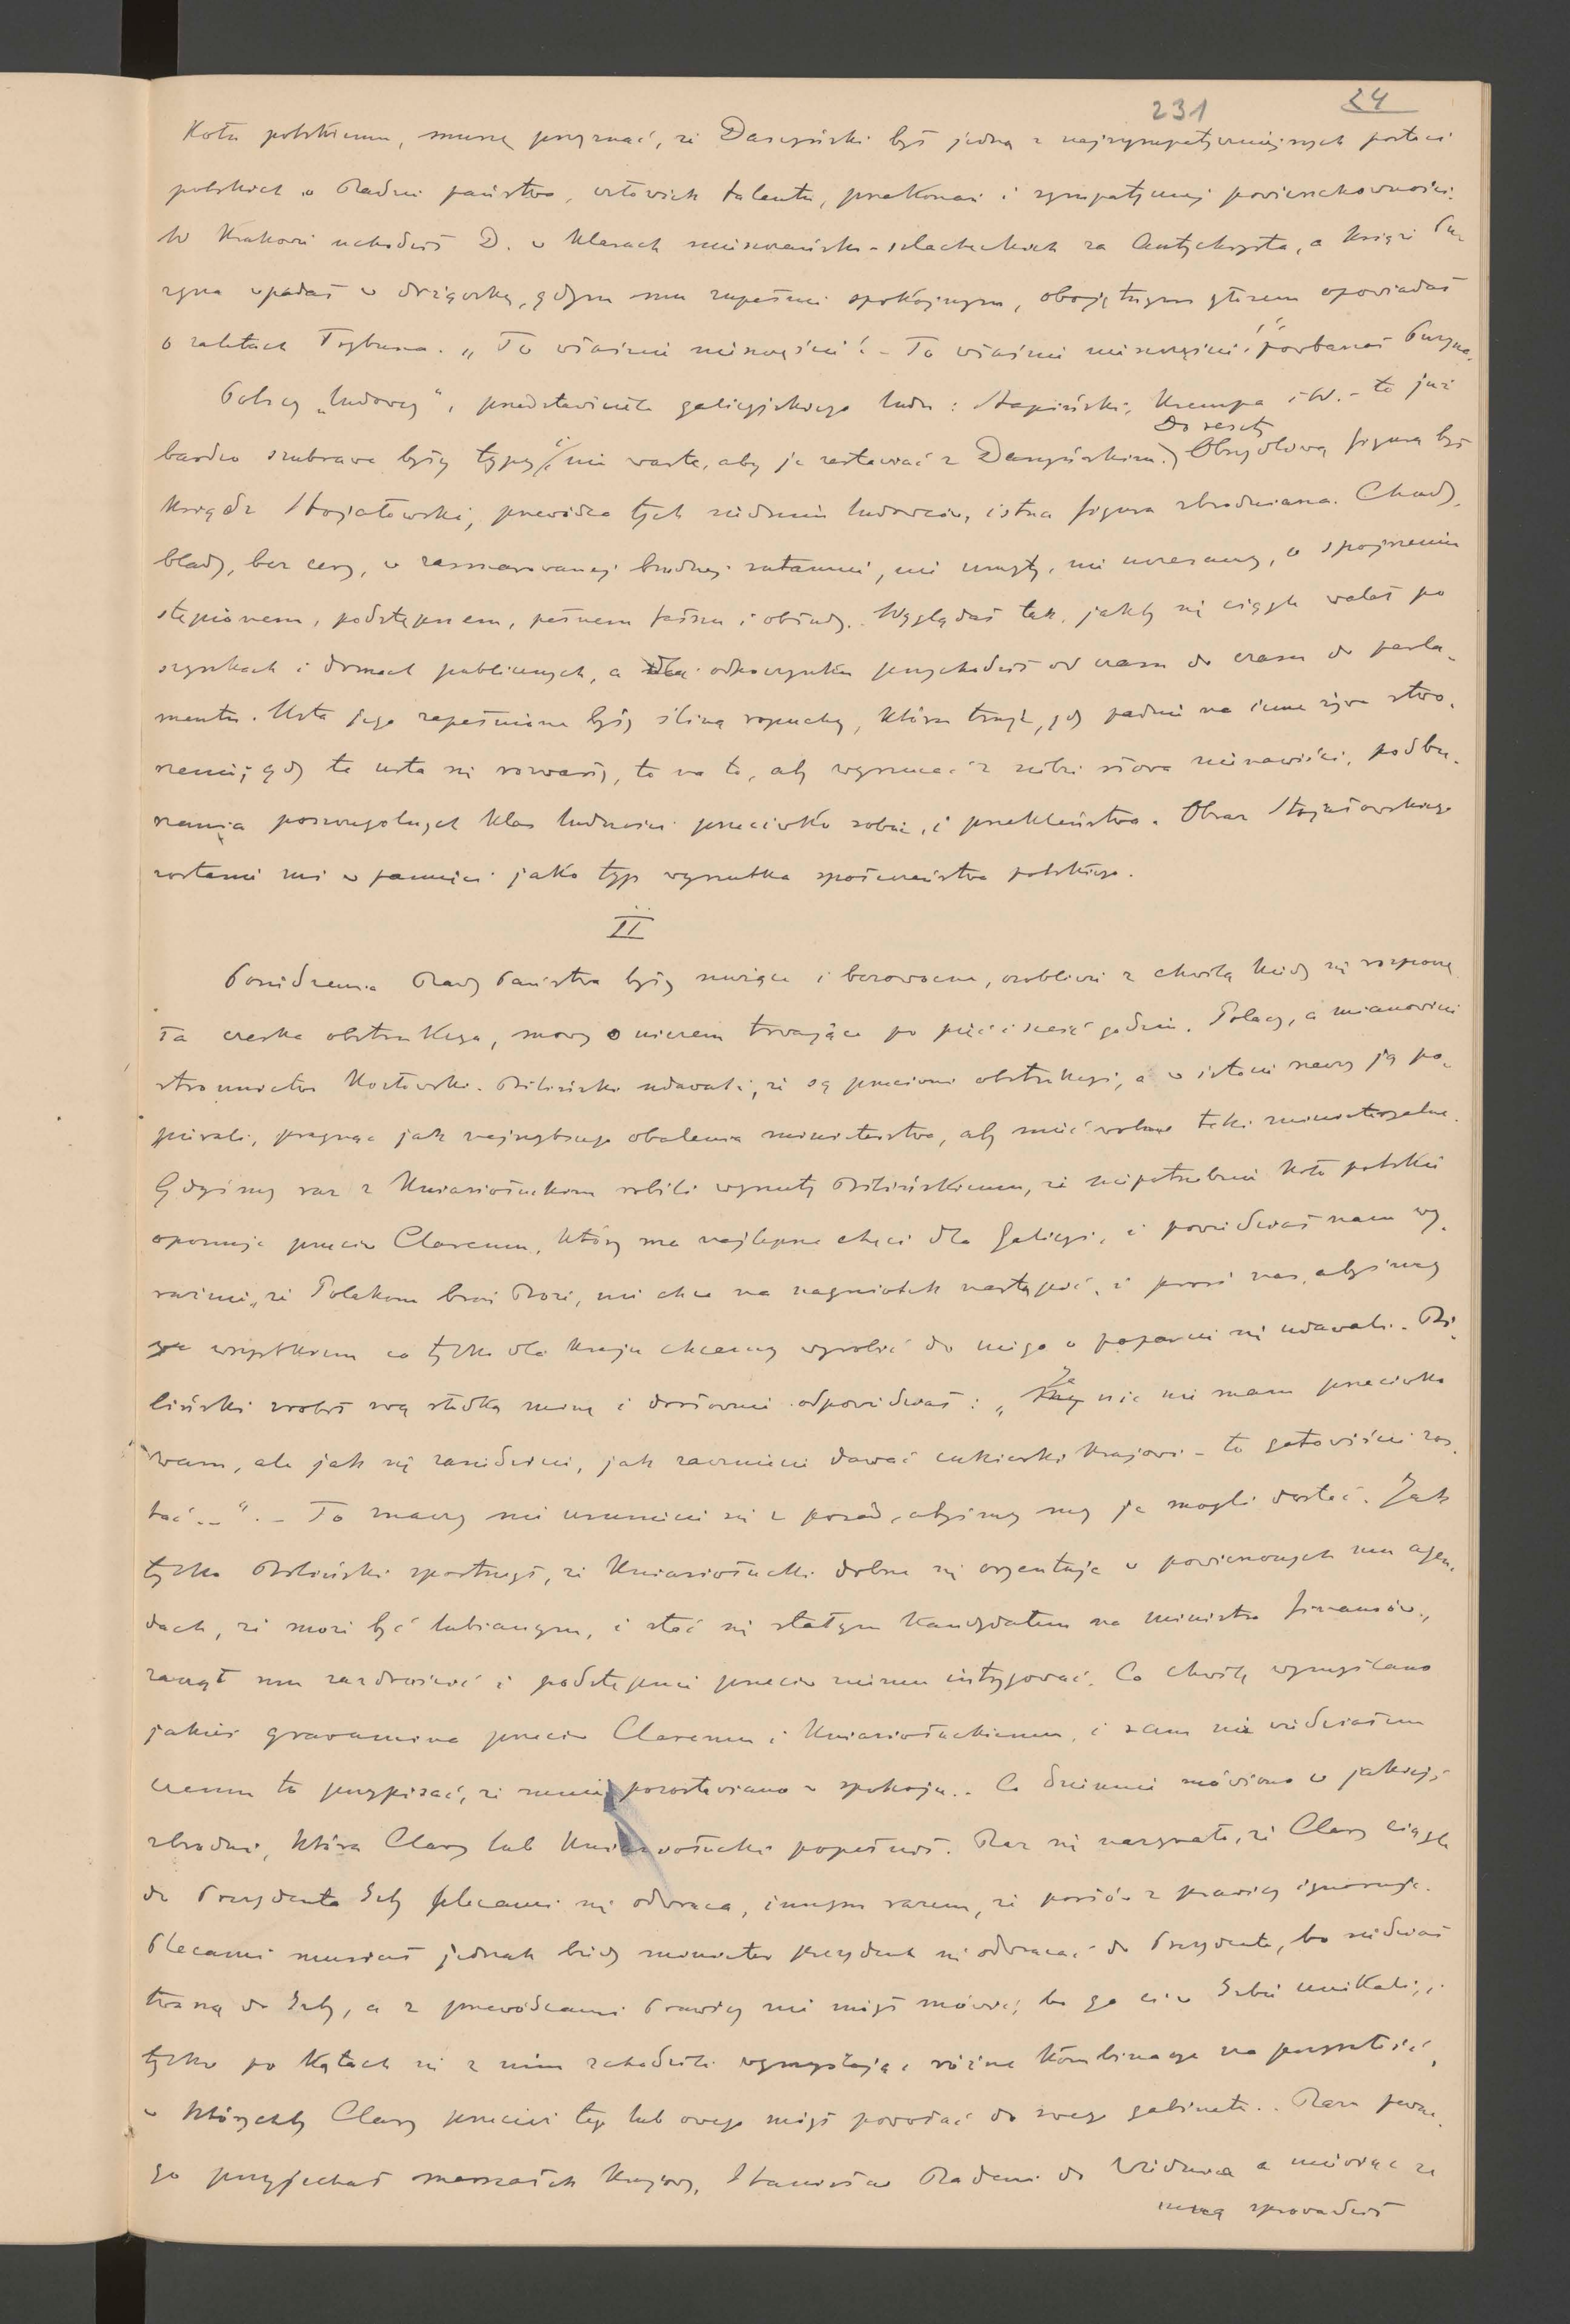 231 24
Kołu polskiemu, muszę przyznać, że Daszyński był jedną z najsympatyczniejszych postaci
polskich w Radzie państwa, człowiek talentu, przekonań i sympatycznej powierzchowności.
W Krakowie uchodził D. w klasach mieszczańsko-szlacheckich za Antychrysta, a książę Pu-
zyna wpadał w drżączkę, gdym mu zupełnie spokojnym, obojętnym głosem opowiadał
o zaletach Trybuna. „To właśnie nieszczęście! - To właśnie nieszczęście!“ powtarzał Puzyna.
Polscy „ludowcy“, przedstawiciele galicyjskiego ludu: Stapiński, Krempa i W. - to już
bardzo szubrawe były typy i nie warte, aby je zestawiać z Daszyńskim. Do reszty Obrzydliwą figurą był
ksiądz Stojałowski, przewódca tych siedmiu ludowców, istna figura zbrodniarza. Chudy,
blady, bez cery, w zasmarowanej brudnej sutannie, nie umyty, nie uczesany, o spojrzeniu
stępionem, podstępnem, pełnem fałszu i obłudy. Wyglądał tak, jakby się ciągle walał po
szynkach i domach publicznych, a dla odpoczynku przychodził od czasu do czasu do parla-
mentu. Usta jego zapełnione były śliną ropuchy, która truje, gdy padnie na inne żywe stwo-
rzenie; gdy te usta się rozwarły, to na to, aby wyrzucać z siebie słowa nienawiści, podbu-
rzania poszczególnych klas ludności przeciwko sobie, i przekleństwa. Obraz Stojałowskiego
zostanie mi w pamięci jako typ wyrzutka społeczeństwa polskiego.
II
Posiedzenia Rady Państwa były nużące i bezowocne, osobliwie z chwilą kiedy się rozpoczę-
ła czeska obstrukcya, mowy o niczem trwające po pięć i sześć godzin. Polacy, a mianowicie
stronnictwo Kozłowski-Biliński udawali, że są przeciwni obstrukcyi, a w istocie rzeczy ją po-
pierali, pragnąc jak najszybszego obalenia ministerstwa, aby mieć wolne teki ministeryalne.
Gdyśmy raz z Kniaziołuckim robili wyrzuty Bilińskiemu, że niepotrzebnie Koło polskie
oponuje przeciw Claremu, który ma najlepsze chęci dla Galicyi, i powiedział nam wy-
raźnie, że Polakom broń Boże, nie chce na nagniotek nastąpić, i prosi nas, abyśmy
we wszystkiem co tylko dla kraju chcemy wyrobić do niego o poparcie się udawali. Bi-
liński zrobił swą słodką minę i dosłownie odpowiedział: „Ja nic nie mam przeciwko
wam, ale jak się zasiedzicie, jak zaczniecie dawać cukierki krajowi - to gotowiście zos-
tać...“. - To znaczy nie usuniecie się z posad, abyśmy my je mogli dostać. Jak
tylko Biliński spostrzegł, że Kniaziołucki dobrze się orjentuje w powierzonych mu agen-
dach, że może być lubianym, i stać się stałym kandydatem na ministra finansów,
zaczął mu zazdrościć i podstępnie przeciw niemu intrygować. Co chwilę wymyślano
jakieś gravamina przeciw Claremu i Kniaziołuckiemu, i sam nie wiedziałem
czemu to przypisać, że mnie pozostawiano w spokoju.. Co dziennie mówiono o jakiejś
zbrodni, którą Clary lub Kniaziołucki popełnił. Raz się nazywało, że Clary ciągle
do Prezydenta Izby plecami się odwraca, innym razem, że posłów z prawicy ignoruje.
Plecami musiał jednak biedny minister prezydent się odwracać do Prezydenta, bo siedział
twarzą do Izby, a z przewódcami Prawicy nie mógł mówić, bo go ci w Izbie unikali, i
tylko po kątach się z nim schodzili wymyślając różne kombinacye na przyszłość,
w którychby Clary przecież tego lub owego mógł powołać do swego gabinetu.. Razu pewne-
go przyjechał marszałek krajowy, Stanisław Badeni do Wiednia a mówiąc ze
mną sprowadził